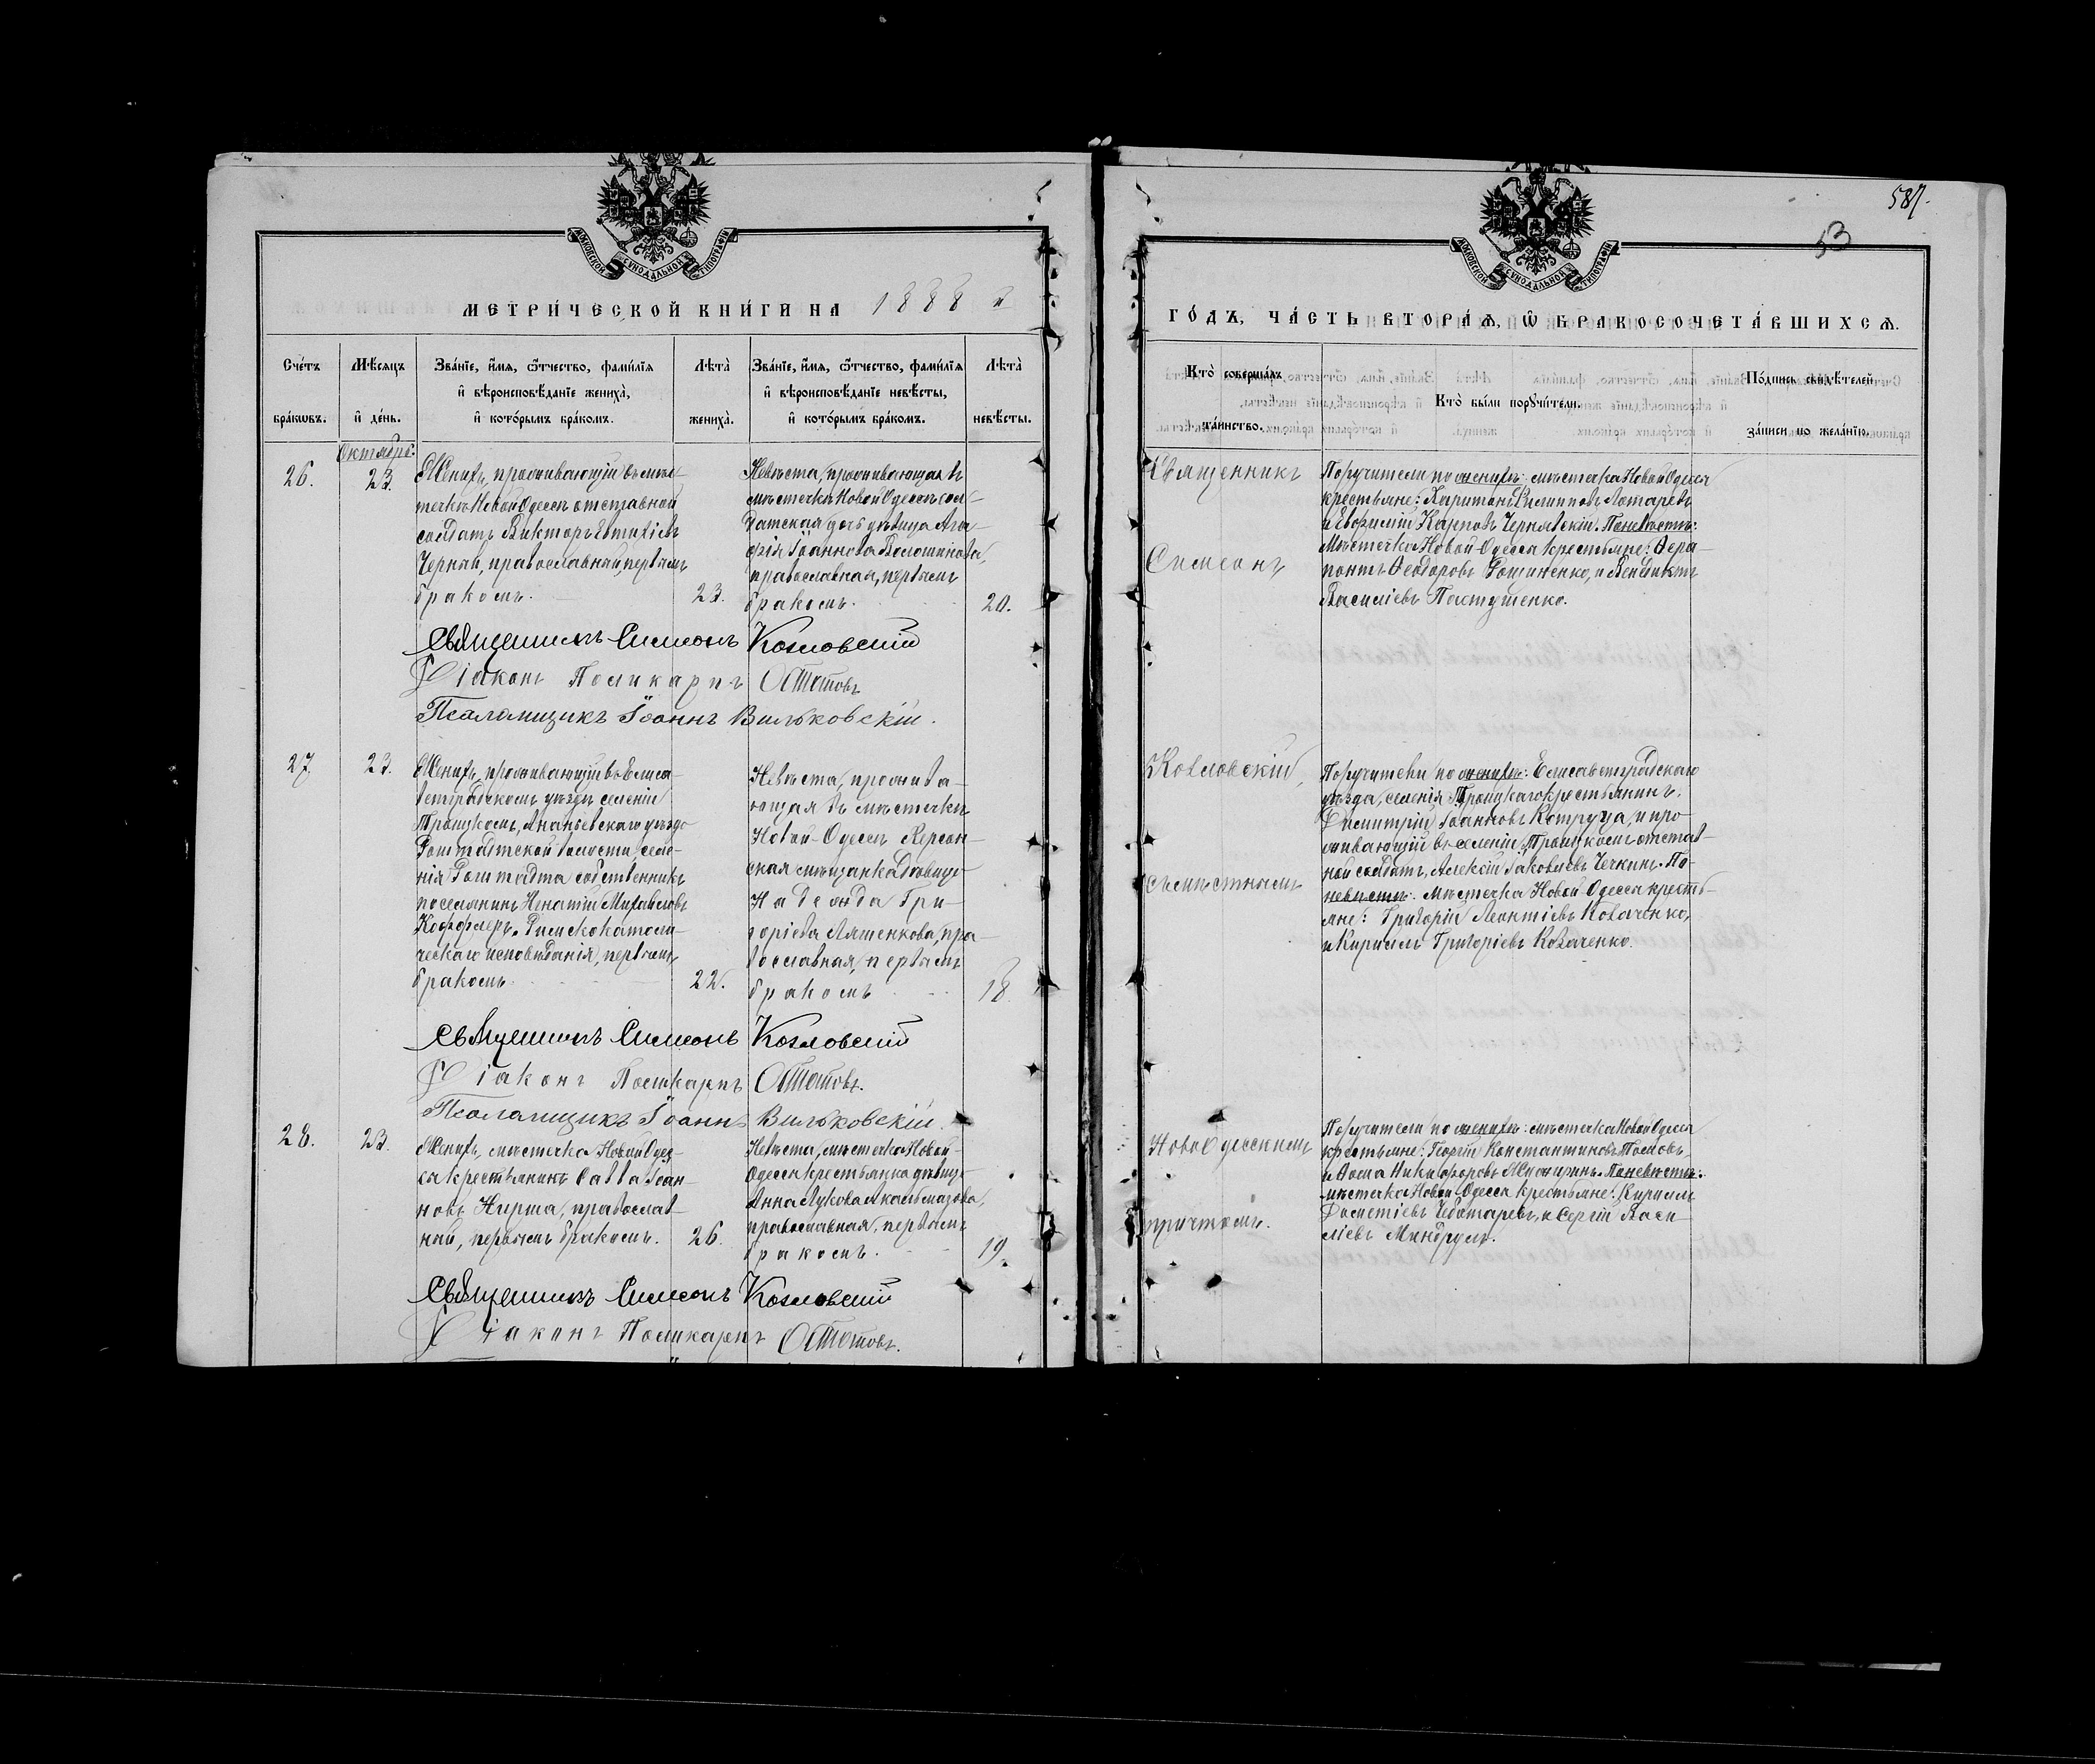 МОСКОВСКОЙ СѴНОДАЛЬНОЙ ТИПОГРАФІИ
МЕТРИ́ЧЕСКОЙ КНИ́ГИ НА 1888 й
Сче́тъ бра́кωвъ.
Мѣ́сяцъ и҆ де́нь.
Зва́нїе, и҆́мя, ѻ҆́тчество, фами́лїя
и҆ вѣроисповѣ́данїе жениха̀,
и҆ кото́рымъ бра́комъ.
Лѣта̀ жениха̀.
Зва́нїе, и҆́мя, ѻ҆́тчество, фами́лїя
и҆ вѣроисповѣ́данїе невѣ́сты,
и҆ кото́рымъ бра́комъ.
Лѣта̀ невѣ́сты.
Октябрь.
26.
23.
Женихъ, проживающій въ мѣс-
течкѣ Новой Одессѣ отставной
солдатъ Викторъ Евтихіевъ
Черный, православный, первымъ
бракомъ.
23.
Невѣста, проживающая въ
мѣстечкѣ Новой Одессѣ сол-
датская дочь дѣвица Ага-
фія Іоаннова Волошинова,
православная, первымъ
бракомъ.
20.
Священникъ Симеонъ Козловскій
Діаконъ Поликарпъ
Псаломщикъ Іоаннъ Вильковскій.
27
23.
Женихъ, проживающій въ Елиса-
ветградскомъ уѣздѣ селеніи
Троицкомъ, Ананьевскаго уѣзда
Раштадтской волости, селе-
нія Раштадта собственникъ
поселянинъ Игнатій Михайловъ
Кофферъ, Римско католи-
ческаго исповѣданія, первымъ
бракомъ.
22.
Невѣста, прожива-
ющая въ мѣстечкѣ
Новой-Одессѣ Херсон-
ская мѣщанка дѣвица
Надежда Гри-
горіева Ляшенкова, пра-
вославная, первымъ
бракомъ
18.
Священникъ Симеонъ Козловскій
Діаконъ Поликарпъ
Псаломщикъ Іоаннъ Вильковскій.
28.
23.
Женихъ, мѣстечка Новой Одес-
сы крестьянинъ Савва Іоан-
новъ Нирша, православ-
ный, первымъ бракомъ.
26.
Невѣста, мѣстечка Новой-
Одессы крестьянка дѣвица
Анна Лукова
православная, первымъ
бракомъ.
19.
Священникъ Симеонъ Козловскій
Діаконъ Поликарпъ
587.
53
МОСКОВСКОЙ СѴНОДАЛЬНОЙ ТИПОГРАФІИ
ГО́ДЪ, ЧА́СТЬ ВТОРА́Я, Ѽ БРАКОСОЧЕТА́ВШИХСЯ.
Кто̀ соверша́лъ
та́инство.
Кто̀ бы́ли поручи́тели.
По́дпись свидѣ́телей
за́писи по жела́нїю.
Священникъ
Симеонъ
Козловскій,
съ мѣстнымъ
Новоодесскимъ
причтомъ.
Поручители по женихѣ: мѣстечка Новой Одессы
крестьяне: Харитонъ Филипповъ Лотаревъ
и Евфимій Карповъ Чернявскій. По невѣстѣ:
Мѣстечка Новой-Одессы крестьяне: Ѳера-
понтъ Ѳеодоровъ и Венедиктъ
Василіевъ Пастушенко.
Поручители по женихѣ: Елисаветградскаго
уѣзда, селенія Троицкаго крестьянинъ
Димитрій Іоанновъ Котруца, и про-
живающій въ селеніи Троицкомъ отстав-
ной солдатъ, Алексій Іаковлевъ Чечкинъ. По
невѣстѣ: мѣстечка Новой Одессы кресть-
яне: Григорій Леонтіевъ Коваченко,
и Кириллъ Григоріевъ Коваченко.
Поручители по женихѣ: мѣстечка Новой Одессы
крестьяне: Георгій Константиновъ
и Ѳома Никифоровъ По невѣстѣ:
мѣстечка Новой Одессы крестьяне: Кириллъ
Дометіевъ Чеботаревъ, и Сергій Васи-
ліевъ Миндрулъ.